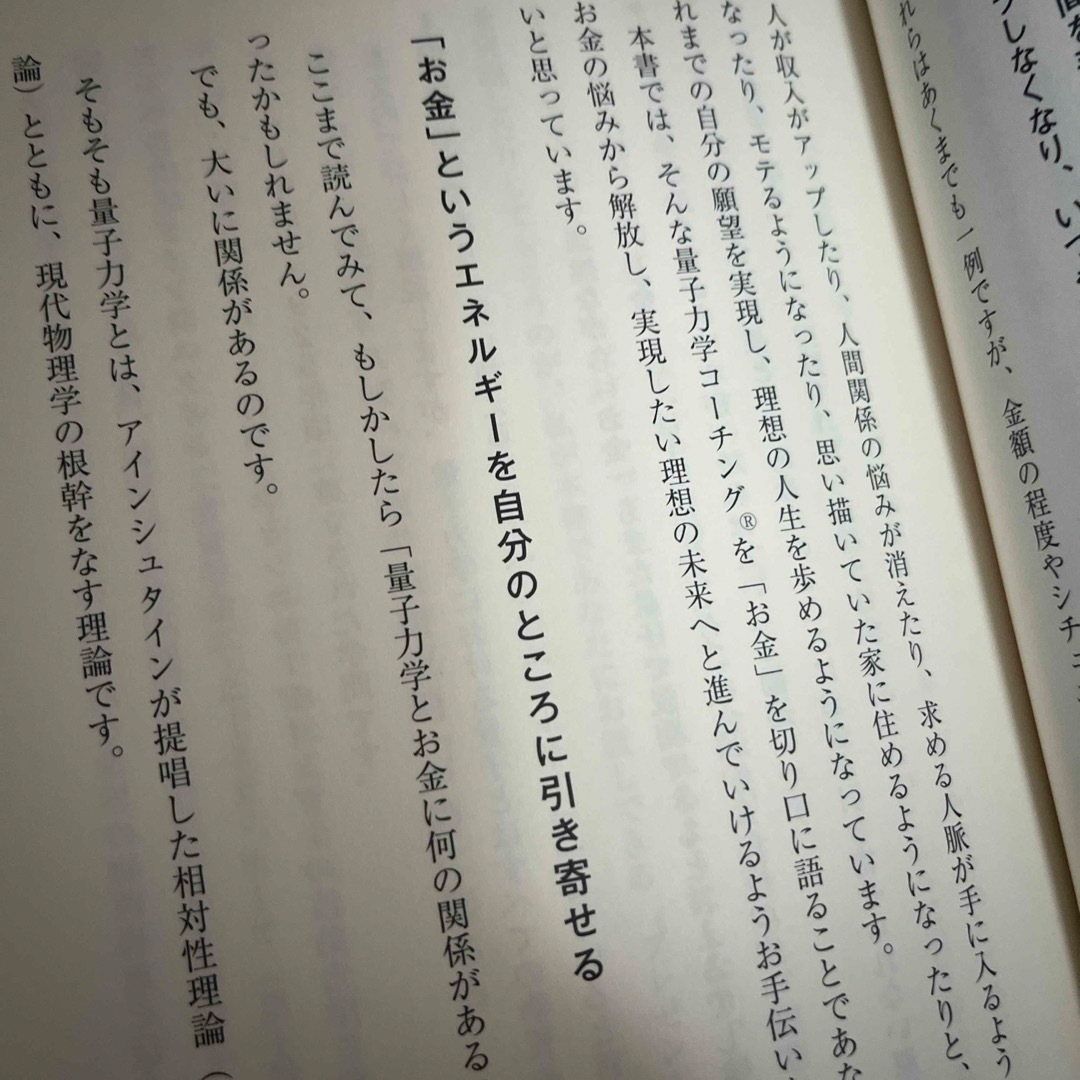 うしなくなり、い
れらはあくまでも一例ですが、金額の程度やシチ
人が収入がアップしたり、人間関係の悩みが消えたり、求める人脈が手に入るよう
なったり、モテるようになったり、思い描いていた家に住めるようになったりと、
れまでの自分の願望を実現し、理想の人生を歩めるようになっています。
本書では、そんな量子力学コーチング®を「お金」を切り口に語ることであな
お金の悩みから解放し、実現したい理想の未来へと進んでいけるようお手伝い
いと思っています。
「お金」というエネルギーを自分のところに引き寄せる
ここまで読んでみて、もしかしたら「量子力学とお金に何の関係がある
ったかもしれません。
でも、大いに関係があるのです。
そもそも量子力学とは、アインシュタインが提唱した相対性理論（
論）とともに、現代物理学の根幹をなす理論です。